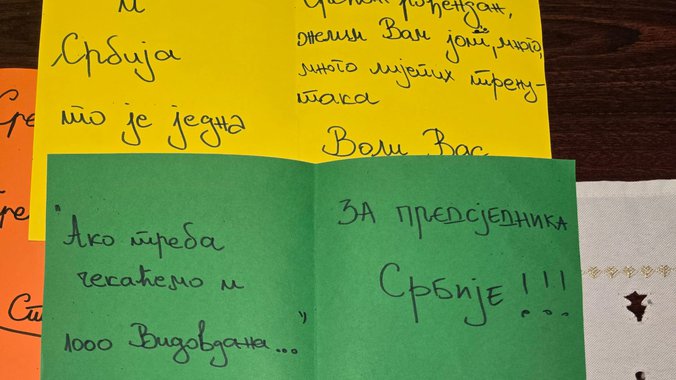 и
Србија
то је једна
Срећан рођендан,
желим Вам још, много,
много лијепих трену-
така
Воли Вас
Сре
Сре
"Ако треба
чекаћемо и
1000 Видовдана..."
ЗА ПРЕДСЈЕДНИКА
Србије !!!